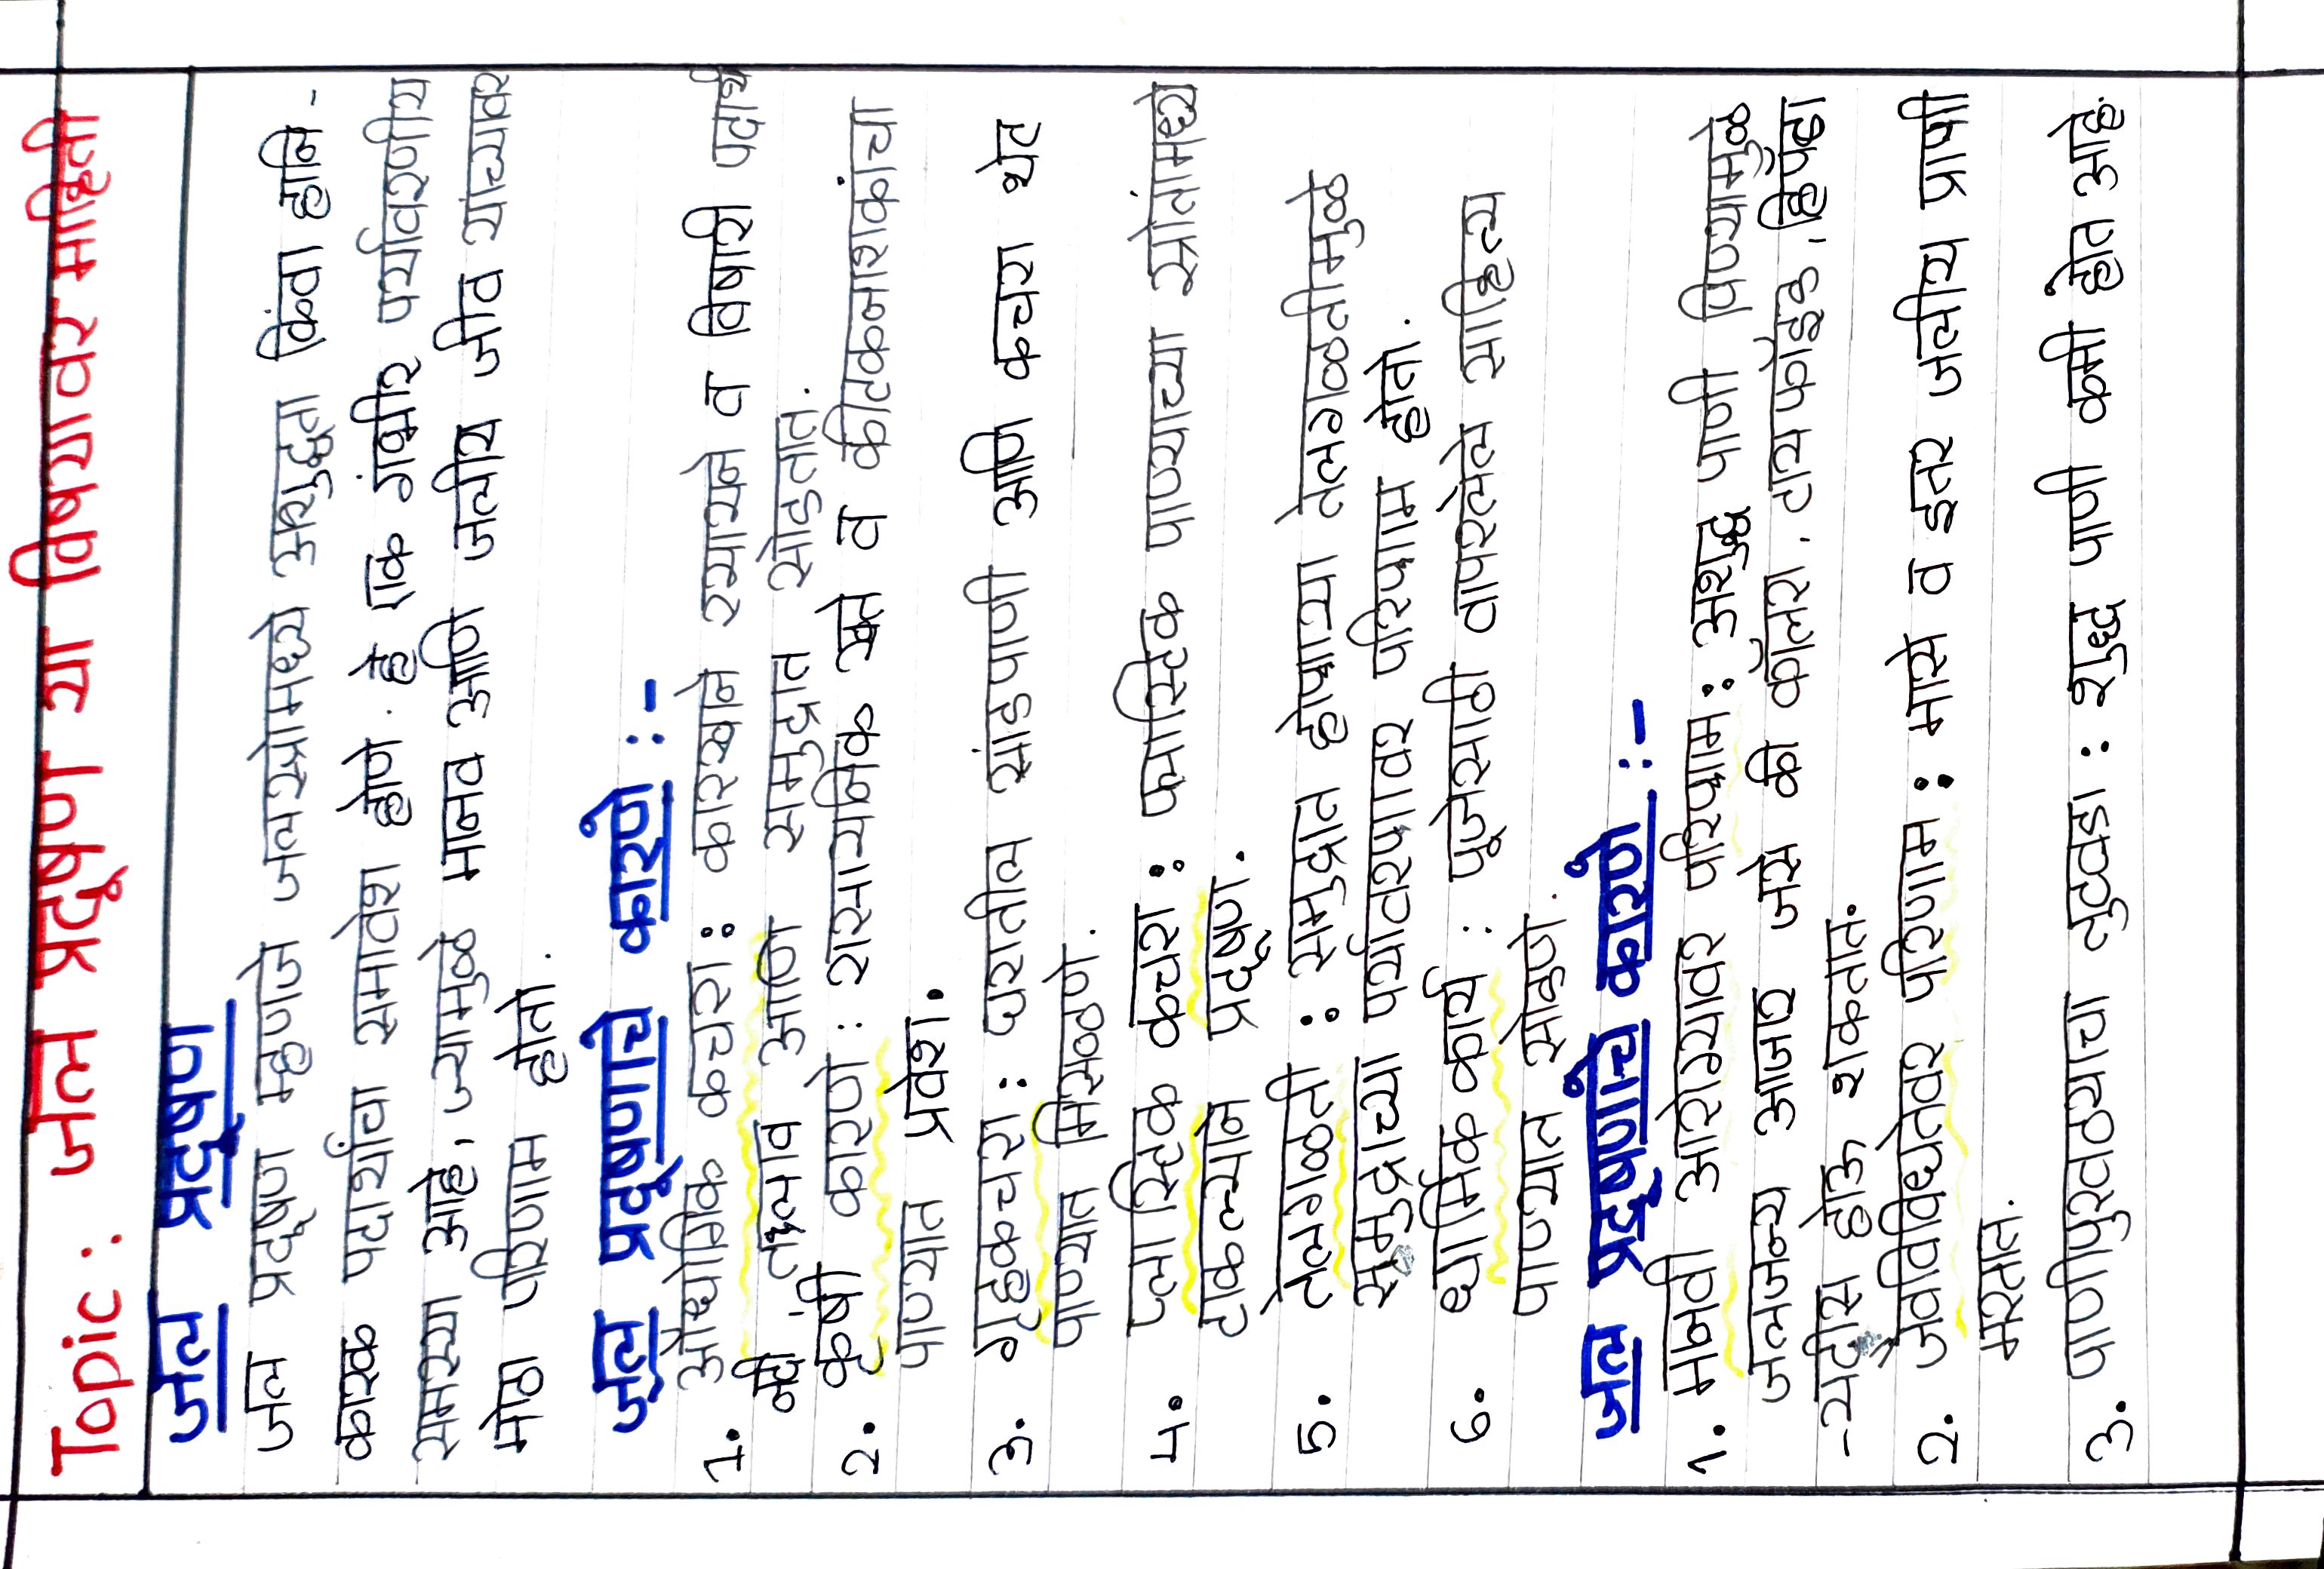 Topic : जल प्रदूषण या विषयावर माहिती
जल प्रदूषण
जल प्रदूषण म्हणजे जलस्त्रोमध्ये अशुद्धता किंवा हानि -
कारक पदार्थांचा समावेश होणे. हे एक गंभीर पर्यावरणीय
समस्या आहे, ज्यामुळे मानव आणि जलीय जीव यांच्यावर
मोठा परिणाम होतो.
जल प्रदूषणाचे कारणे :-
1. औद्योगिक कचरा : कारखाने रसायने व विषारी पदार्थ
नदी, तलाव आणि समुद्रात सोडतात.
2. कृषी कारणे : रासायनिक खते व कीटकनाशकांचा
पाण्यात प्रवेश.
3. गृहकचरा : घरातील सांडपाणी आणि कचरा थेट
पाण्यात मिसळणे.
4. प्लास्टिक कचरा : प्लास्टिक पाण्याच्या स्रोतांमध्ये
टाकल्याने प्रदूषण.
5. तेलगळती : समुद्रात होणाऱ्या तेलगळतीमुळे
समुद्राच्या पर्यावरणावर परिणाम होतो.
6. धार्मिक कार्य : पूजेसाठी वापरलेले साहित्य
पाण्यात सोडणे.
जल प्रदूषणाचे कारणे :-
1. मानवी आरोग्यावर परिणाम : अशुद्ध पाणी पिण्यामुळे
जलजन्य आजार जसे की कॉलरा, टायफॉइड, हिपॅटा
-यटीस होऊ शकतात.
2. जैवविविधतेवर परिणाम : मासे व इतर जलीय प्राणी
मरतात.
3. पाणीपुरवठयाचा तुटवडा : शुद्ध पाणी कमी होत आहे.